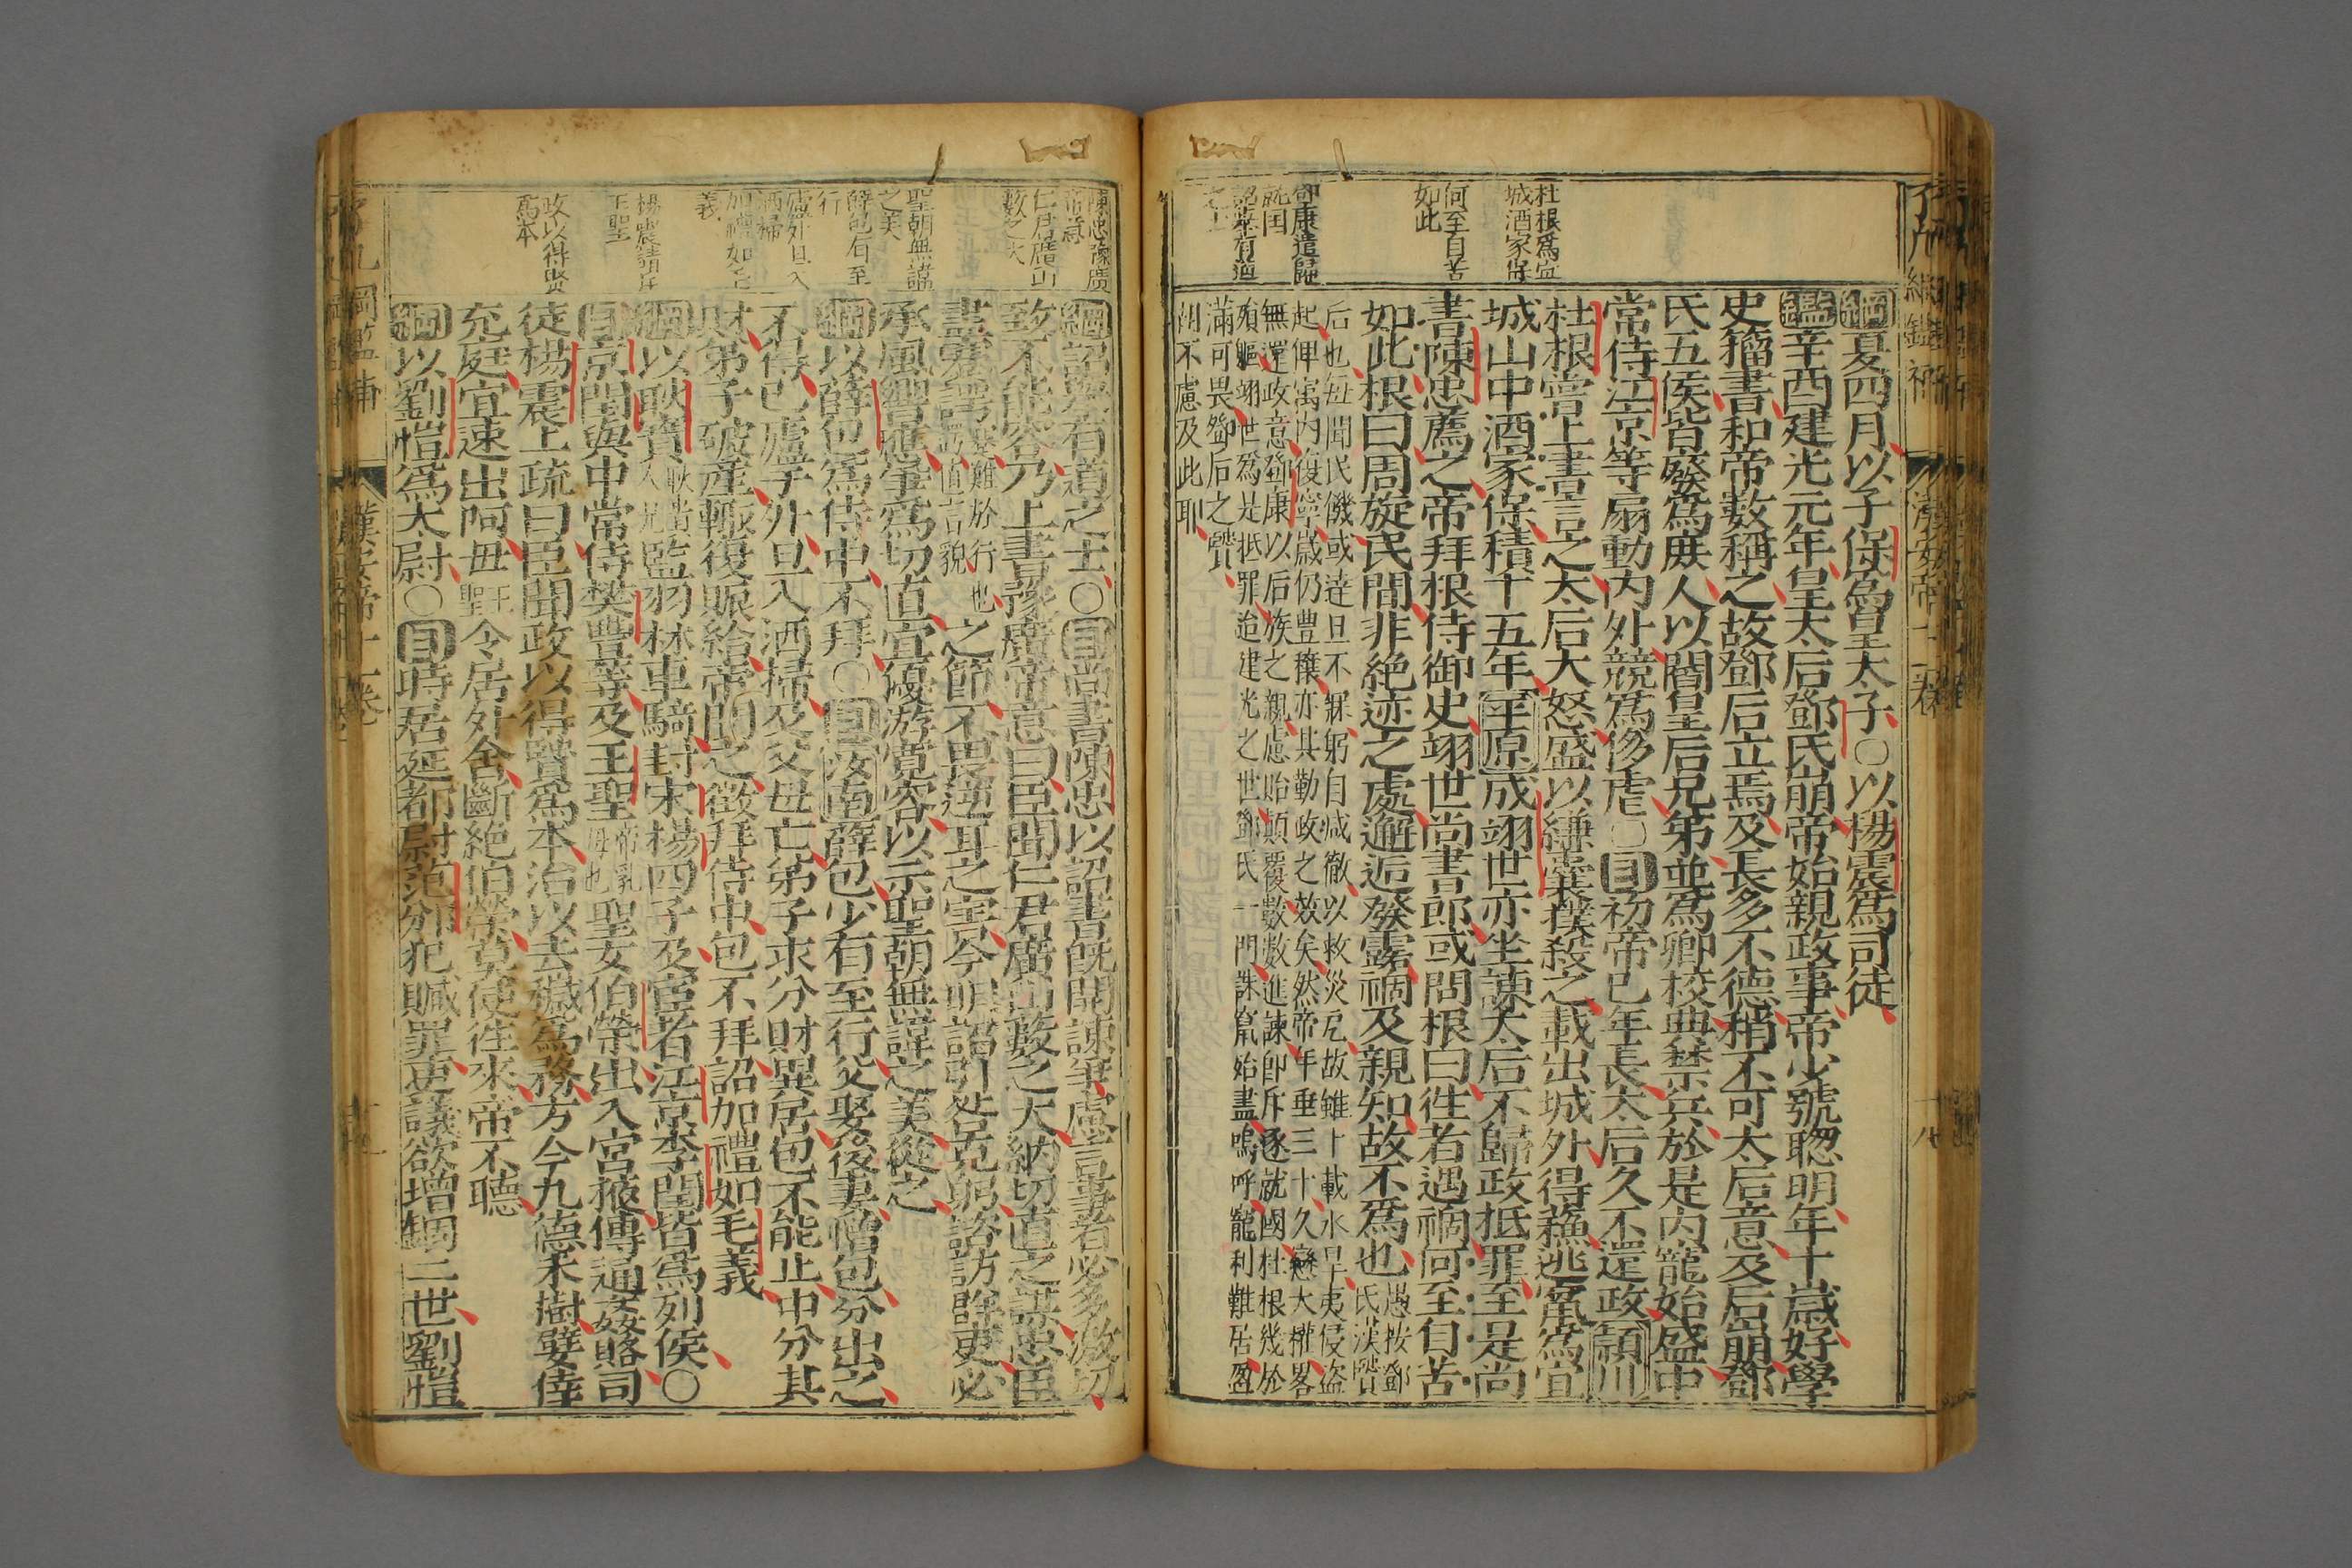 杜根爲宜
城酒家保
何至自苦
如此
鄧康遣歸
就国
綱夏四月以子保爲皇太子○以楊震爲司徒
鑑辛酉建光元年皇太后鄧氏崩帝始親政事帝少號聰明年十歲好學
史籀書和帝數稱之故鄧后立焉及長多不德稍不可太后意及后崩鄧
氏五侯皆廢爲庶人以閻皇后兄弟並爲卿校典禁兵於是內寵始盛中
常侍江京等扇動內外競爲侈虐○目初帝已年長太后久不還政潁川
杜根嘗上書言之太后大怒盛以縑囊撲殺之載出城外得蘇逃竄爲宜
城山中酒家保積十五年平原成翊世亦坐諫太后不歸政抵罪至是尚
書陳忠薦之帝拜根侍御史翊世尚書郎或問根曰往者遇禍何至自苦
如此根曰周旋民間非絕迹之處邂逅發露禍及親知故不爲也愚按鄧氏漢賢
后也每聞民饑或達旦不寐躬自減徹以救災戹故雖十載水旱夷侵盜
起俾寓內復寧歲仍豊穰亦其勤政之效矣然帝年垂三十久戀大權畧
無還政意鄧康以后族之親慮貽顛覆數數進諫卽斥逐就國杜根幾於
殞軀翊世爲是抵罪迨建光之世鄧氏一門誅竄始盡嗚呼寵利難居盈
滿可畏鄧后之賢
胡不慮及此耶
陳忠豫廣
帝意
仁君廣山
藪之大
聖朝無諱
之美
薛包有至
行
廬外旦入
洒掃
加禮如毛
義
楊震請斥
王聖
政以得賢
爲本
綱詔舉有道之士○目尚書陳忠以詔書旣開諫爭慮言事者必多激切
致不能容乃上書豫廣帝意曰臣聞仁君廣山藪之大納切直之謀忠臣
盡蹇諤蹇難於行也諤直言貌之節不畏逆耳之害今明詔引咎克躬諮訪群吏必
承風響應爭爲切直宜優游寬容以示聖朝無諱之美從之
綱以薛包爲侍中不拜○目汝南薛包少有至行父娶後妻憎包分出之
不得已廬于外旦入洒掃及父母亡弟子求分財異居包不能止中分其
財弟子破產輒復賑給帝聞之徵拜侍中包不拜詔加禮如毛義
綱以耿寶耿貴人兄監羽林車騎封宋楊四子及宦者江京李閏皆爲列侯○
目京閏與中常侍樊豊等及王聖帝乳母也聖女伯榮出入宮掖傳通姦賂司
徒楊震上疏曰臣聞政以得賢爲本治以去穢爲務方今九德未樹嬖倖
充庭宜速出阿母王聖令居外舍斷絶伯榮莫使往來帝不聽
綱以劉愷爲太尉○目時居延都尉范邠犯贓罪吏議欲增錮二世劉愷